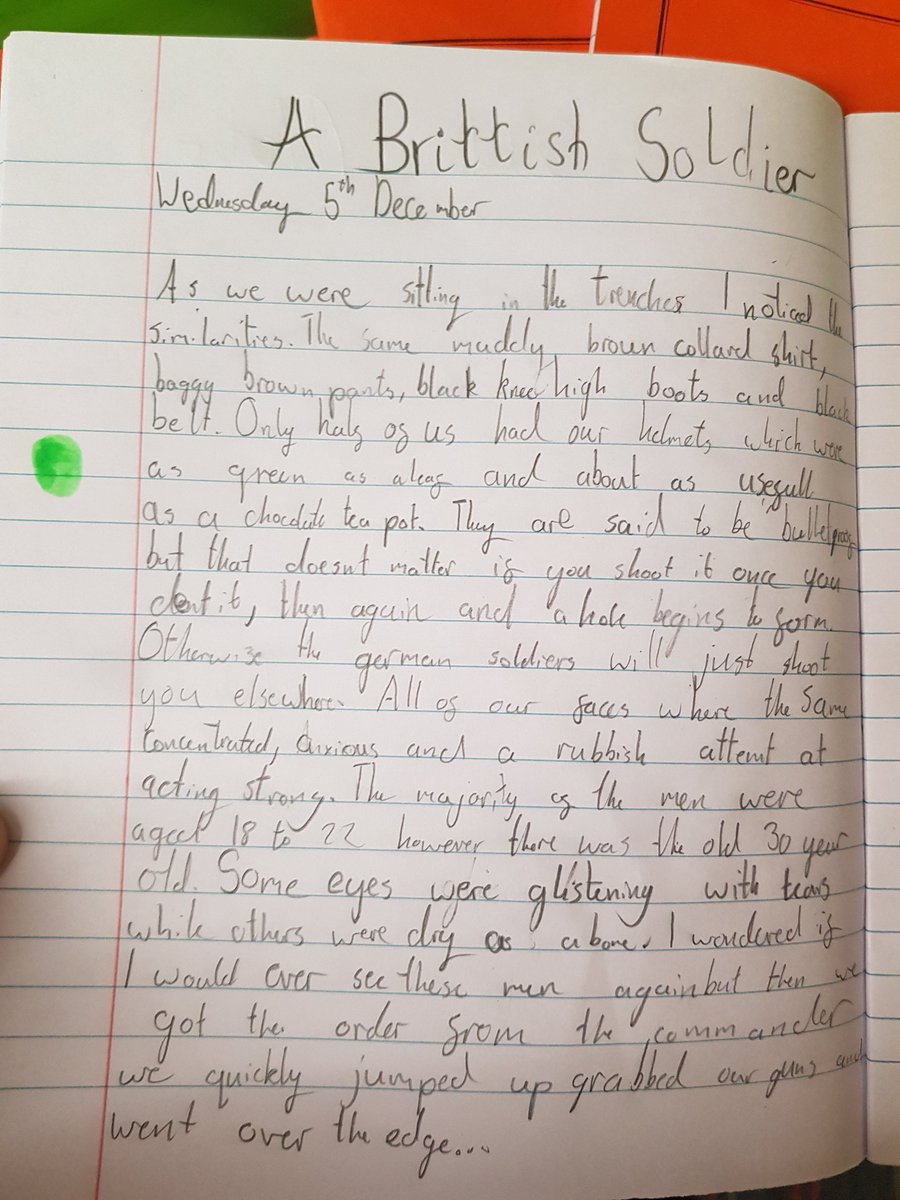 A Brittish Soldier
Wednesday 5th December
As we were sitting in the trenches I noticed the
similarities. The same muddy brown collard shirt,
baggy brown pants, black knee high boots and black
belt. Only half of us had our helmets which were
as green as a leaf and about as usefull
as a chocolate tea pot. They are said to be bulletproof
but that doesnt matter if you shoot it once you
dent it, then again and a hole begins to form.
Otherwise the german soldiers will just shoot
you elsewhere. All of our faces where the same
concentrated, anxious and a rubbish attemt at
acting strong. The majority of the men were
aged 18 to 22 however there was the old 30 year
old. Some eyes were glistening with tears
while others were dry as a bone. I wondered if
I would ever see these men again but then we
got the order from the commander
we quickly jumped up grabbed our guns and
went over the edge...